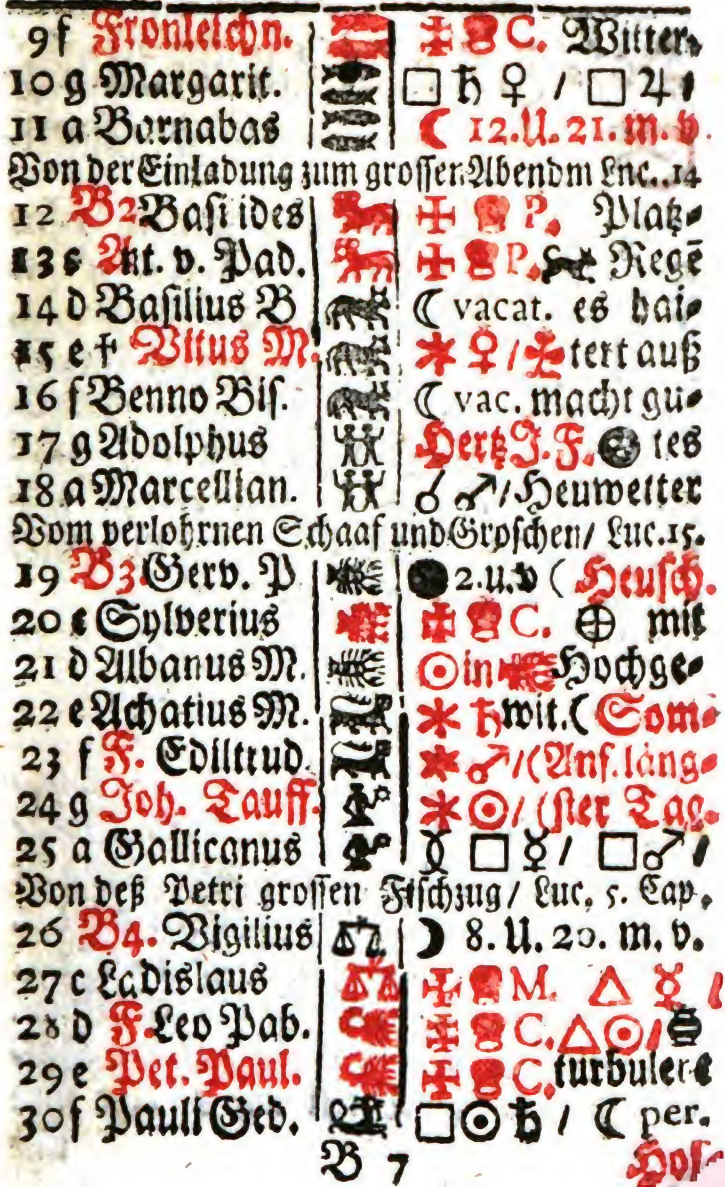 9 f Fronleichn. C. Witter⸗
10 g Margarit. □ ♄ ♀ / □ ♃ /
11 a Barnabas ☾ 12. U. 21. m. v.
Von der Einladung zum grossen Abendm Luc. 14
12 B2 Basi ides P. Platz⸗
13 c Ant. v. Pad. P. Regē
14 d Basilius B ☾ vacat. es hai⸗
15 e † Vitus M. ✶ ♀ / tert auß
16 f Benno Bis. ☾ vac. macht gu⸗
17 g Adolphus Hertz J. F. tes
18 a Marcellian. ☌ ♂ / Heuwetter
Vom verlohrnen Schaaf und Groschen / Luc. 15.
19 B3. Gerv. P ● 2. u. v ( Heusch.
20 c Sylverius C. ⊕ mit
21 d Albanus M. ☉ in ♋ Hochge⸗
22 e Achatius M. ✶ ♄ wit. ( Som⸗
23 f F. Ediltrud. ✶ ♂ / ( Anf. läng⸗
24 g Joh. Tauff. ✶ ☉ / ( ster Tag.
25 a Gallicanus □ ☿ / □ ♂ /
Von deß Petri grossen Fischzug / Luc. 5. Cap.
26 B4. Vigilius ☽ 8. U. 20. m. v.
27 c Ladislaus M. △ ☿ /
28 d F. Leo Pab. C. △ ☉ /
29 e Pet. Paul. C. turbulen⸗
30 f Pauli Ged. □ ☉ ♄ / ☾ per.
B 7 Hof⸗